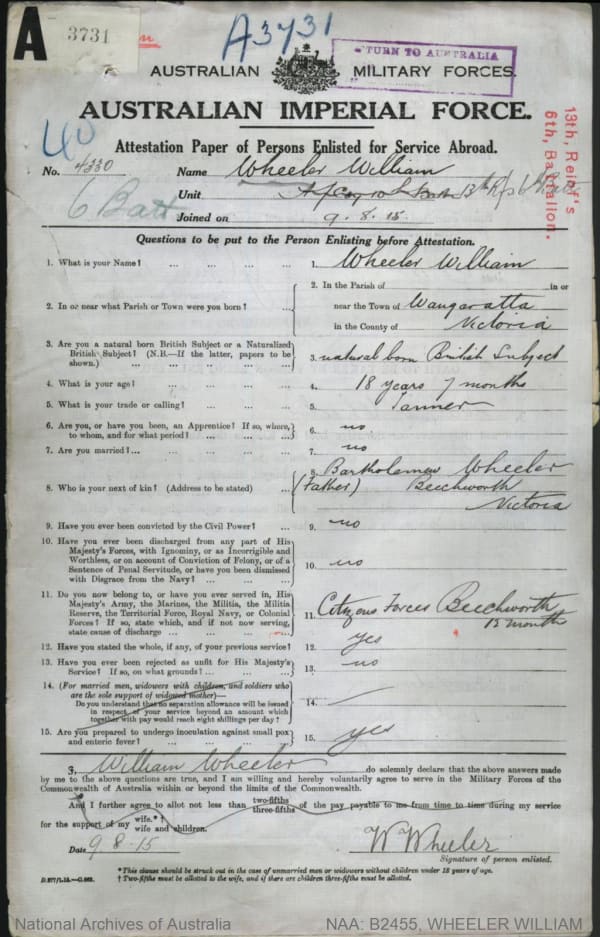 A
3731
A3731
RETURN TO AUSTRALIA
AUSTRALIAN MILITARY FORCES.
AUSTRALIAN IMPERIAL FORCE.
13th, Reinf's
6th, Battalion.
40
Attestation Paper of Persons Enlisted for Service Abroad.
No. 4330 Name Wheeler William
6 Batt Unit 13th Rfs 6th Batt
Joined on 9.8.15
Questions to be put to the Person Enlisting before Attestation.
1. What is your Name? ... ... ... ... 1. Wheeler William
2. In or near what Parish or Town were you born? ... 2. In the Parish of in or
near the Town of Wangaratta
in the County of Victoria
3. Are you a natural born British Subject or a Naturalized British Subject? (N.B.—If the latter, papers to be shown.) ... 3. natural born British Subject
4. What is your age? ... ... ... ... 4. 18 years 7 months
5. What is your trade or calling? ... ... ... 5. Tanner
6. Are you, or have you been, an Apprentice? If so, where, to whom, and for what period? ... ... ... 6. no
7. Are you married? ... ... ... ... 7. no
8. Who is your next of kin? (Address to be stated) ... 8. Bartholemew Wheeler
(Father) Beechworth
Victoria
9. Have you ever been convicted by the Civil Power? ... 9. no
10. Have you ever been discharged from any part of His Majesty's Forces, with Ignominy, or as Incorrigible and Worthless, or on account of Conviction of Felony, or of a Sentence of Penal Servitude, or have you been dismissed with Disgrace from the Navy? ... ... ... 10. no
11. Do you now belong to, or have you ever served in, His Majesty's Army, the Marines, the Militia, the Militia Reserve, the Territorial Force, Royal Navy, or Colonial Forces? If so, state which, and if not now serving, state cause of discharge ... ... ... 11. Citizens Forces Beechworth
12 months
12. Have you stated the whole, if any, of your previous service? 12. yes
13. Have you ever been rejected as unfit for His Majesty's Service? If so, on what grounds? ... ... 13. no
14. (For married men, widowers with children, and soldiers who are the sole support of widowed mother)—
Do you understand that no separation allowance will be issued in respect of your service beyond an amount which together with pay would reach eight shillings per day? 14. —
15. Are you prepared to undergo inoculation against small pox and enteric fever? ... ... ... ... 15. yes
I, William Wheeler do solemnly declare that the above answers made
by me to the above questions are true, and I am willing and hereby voluntarily agree to serve in the Military Forces of the
Commonwealth of Australia within or beyond the limits of the Commonwealth.
And I further agree to allot not less than two-fifths three-fifths of the pay payable to me from time to time during my service
for the support of my wife.*† wife and children.
Date 9.8.15 W Wheeler
Signature of person enlisted.
* This clause should be struck out in the case of unmarried men or widowers without children under 18 years of age.
† Two-fifths must be allotted to the wife, and if there are children three-fifths must be allotted.
National Archives of Australia NAA: B2455, WHEELER WILLIAM